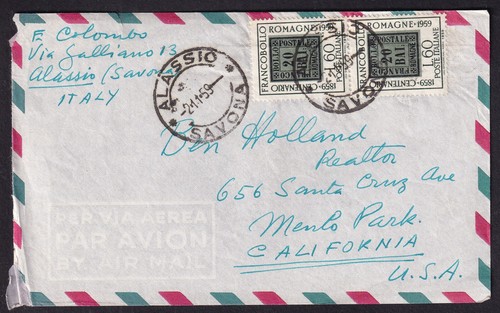 F. Colombo
Via Galliano 13
Alassio (Savona)
ITALY
ALASSIO
SAVONA
FRANCOBOLLO ROMAGNE·1959
1859·CENTENARIO
POSTE ITALIANE
L.60
FRANCO BOLLO POSTALE
20
BAI
FRANCOBOLLO ROMAGNE·1959
1859·CENTENARIO
POSTE ITALIANE
L.60
POSTALE
20
BAI
SAVO
Ben Holland
Realtor
656 Santa Cruz Ave
Menlo Park.
CALIFORNIA
U.S.A.
PER VIA AEREA
PAR AVION
BY AIR MAIL